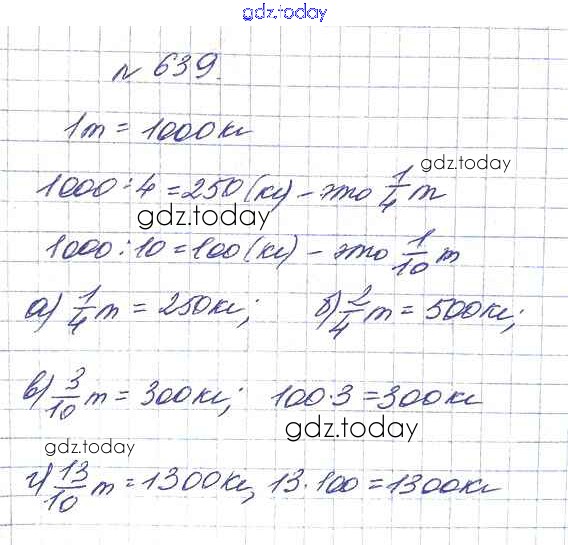 gdz.today
№ 639.
1т = 1000кг
gdz.today
1000:4 = 250 (кг) - это 1/4 т
gdz.today
1000:10 = 100 (кг) - это 1/10 т
а) 1/4 т = 250кг; б) 2/4 т = 500кг;
в) 3/10 т = 300кг; 100·3 = 300кг
gdz.today
gdz.today
г) 13/10 т = 1300кг, 13·100 = 1300кг